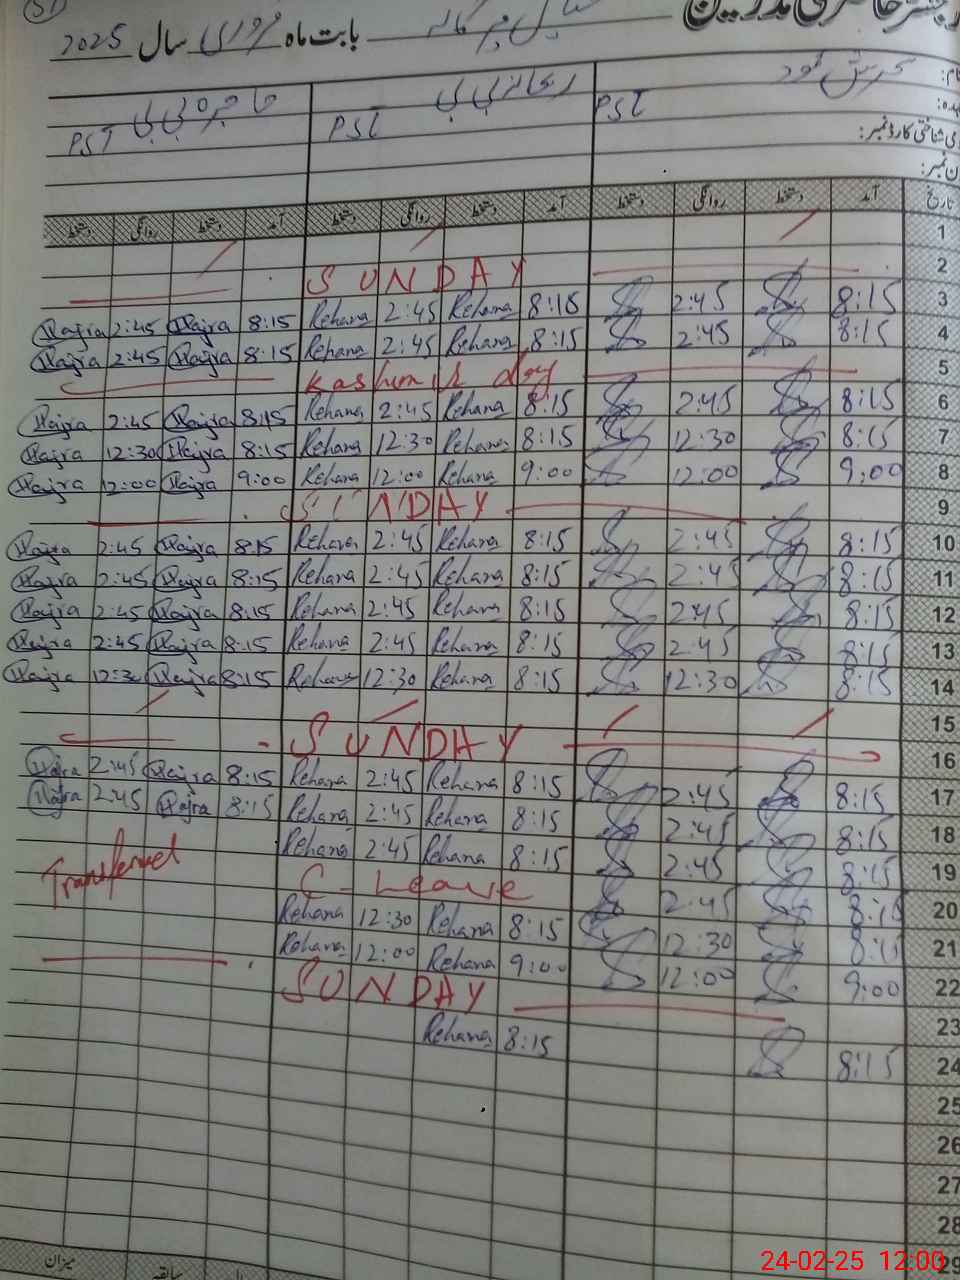 رجسٹر حاضری مدرسین بابت ماہ فروری سال 2025
نام: سحرش نور ریحانہ بی بی حاجرہ بی بی
عہدہ: PST PST PST
قومی شناختی کارڈ نمبر:
فون نمبر:
تاریخ آمد دستخط روانگی دستخط آمد دستخط روانگی دستخط آمد دستخط روانگی دستخط
1
SUNDAY 2
Hajra 2:45 Hajra 8:15 Rehana 2:45 Rehana 8:15 2:45 8:15 3
Hajra 2:45 Hajra 8:15 Rehana 2:45 Rehana 8:15 2:45 8:15 4
Kashmir day 5
Hajra 2:45 Hajra 8:15 Rehana 2:45 Rehana 8:15 2:45 8:15 6
Hajra 12:30 Hajra 8:15 Rehana 12:30 Rehana 8:15 12:30 8:15 7
Hajra 12:00 Hajra 9:00 Rehana 12:00 Rehana 9:00 12:00 9:00 8
SUNDAY 9
Hajra 2:45 Hajra 8:15 Rehana 2:45 Rehana 8:15 2:45 8:15 10
Hajra 2:45 Hajra 8:15 Rehana 2:45 Rehana 8:15 2:45 8:15 11
Hajra 2:45 Hajra 8:15 Rehana 2:45 Rehana 8:15 2:45 8:15 12
Hajra 2:45 Hajra 8:15 Rehana 2:45 Rehana 8:15 2:45 8:15 13
Hajra 12:30 Hajra 8:15 Rehana 12:30 Rehana 8:15 12:30 8:15 14
15
SUNDAY 16
Hajra 2:45 Hajra 8:15 Rehana 2:45 Rehana 8:15 2:45 8:15 17
Hajra 2:45 Hajra 8:15 Rehana 2:45 Rehana 8:15 2:45 8:15 18
Transferred Rehana 2:45 Rehana 8:15 2:45 8:15 19
C-Leave 2:45 8:15 20
Rehana 12:30 Rehana 8:15 12:30 8:15 21
Rehana 12:00 Rehana 9:00 12:00 9:00 22
SUNDAY 23
Rehana 8:15 8:15 24
25
26
27
28
29
میزان سابقہ
24-02-25 12:00